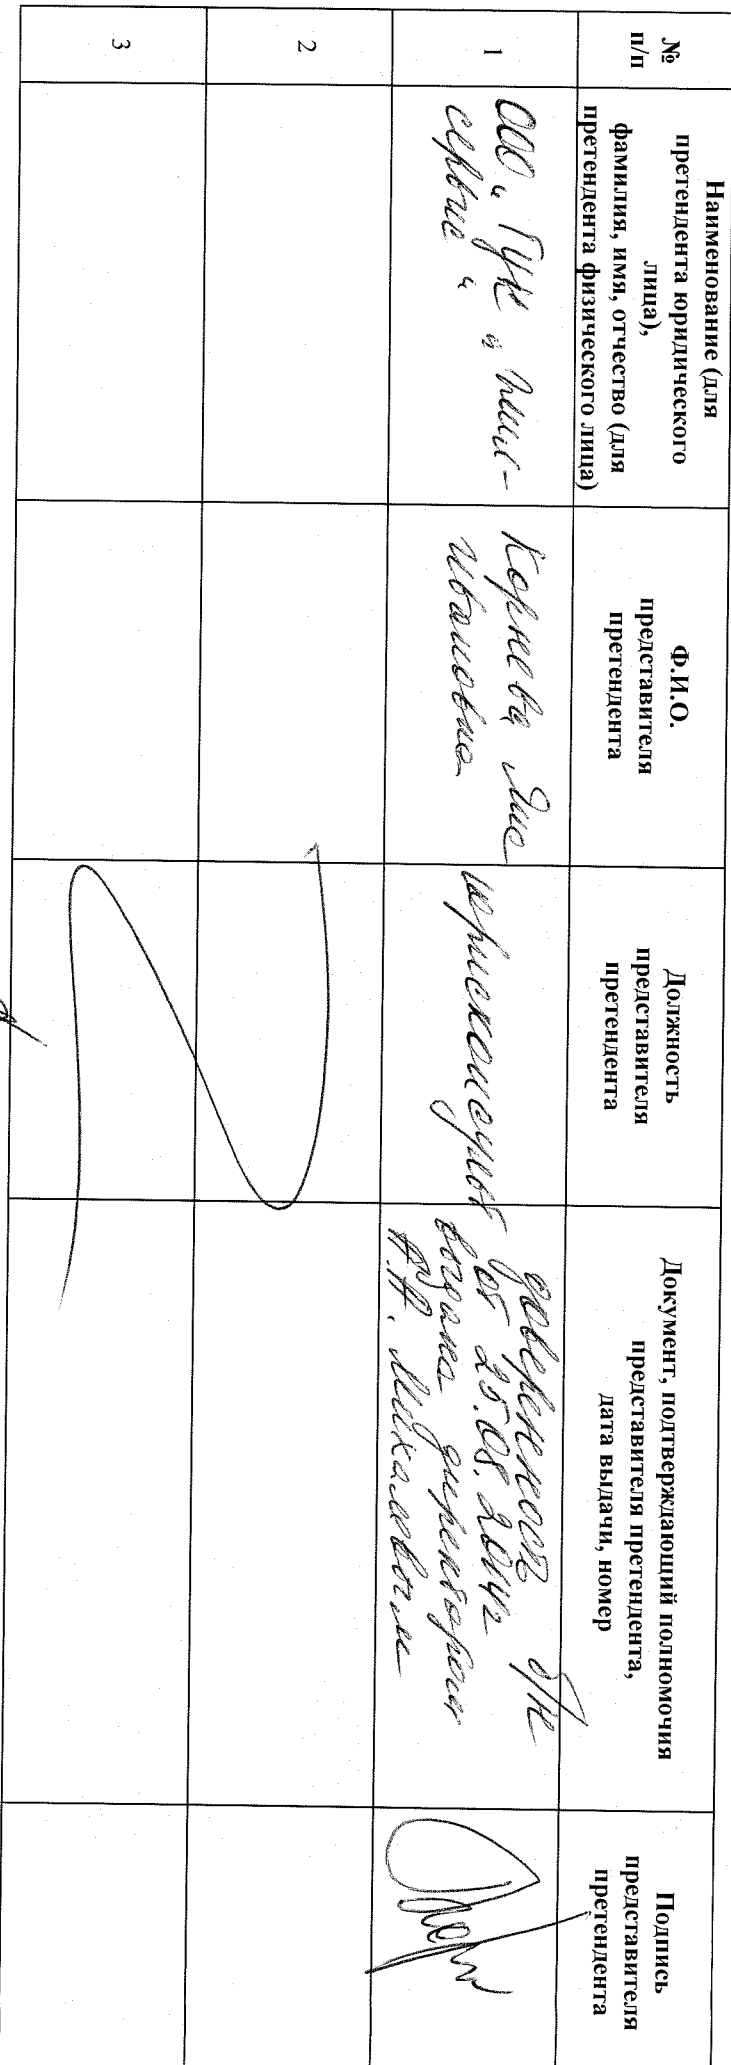 №
п/п
Наименование (для
претендента юридического
лица),
фамилия, имя, отчество (для
претендента физического лица)
Ф.И.О.
представителя
претендента
Должность
представителя
претендента
Документ, подтверждающий полномочия
представителя претендента,
дата выдачи, номер
Подпись
представителя
претендента
1
ООО "ГУК "Жил-
сервис"
Корнева
Ивановна
юрисконсульт
доверенность б/н
от 25.08.2014г
выдана директором
А.А. Михалевым
2
3